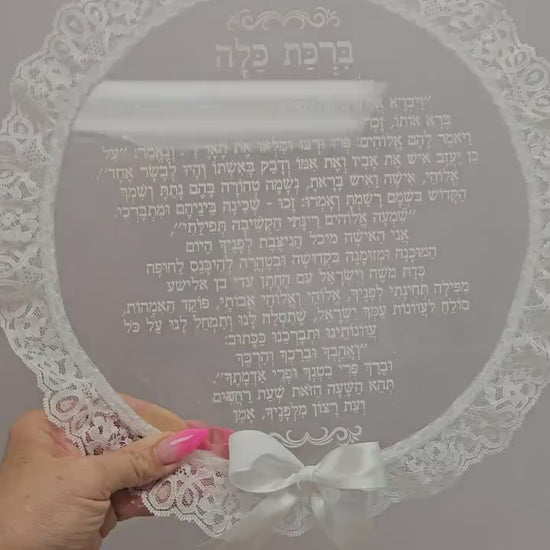 בִּרְכַּת כַּלָּה
"וַיִּבְרָא
בָּרָא אוֹתוֹ, זָכָר
וַיֹּאמֶר לָהֶם אֱלוֹהִים: פְּרוּ וּרְבוּ וּמִלְאוּ אֶת הָאָרֶץ". וְנֶאֱמַר: "עַל
כֵּן יַעֲזָב אִישׁ אֶת אָבִיו וְאֶת אִמּוֹ וְדָבַק בְּאִשְׁתּוֹ וְהָיוּ לְבָשָׂר אֶחָד".
אֱלוֹהַי, אִישָׁה וְאִישׁ בָּרָאתָ, נְשָׁמָה טְהוֹרָה בָּהֶם נָתַתָּ וְשִׁמְךָ
הַקָּדוֹשׁ בִּשְׁמָם רָשַׁמְתָּ וְאָמַרְתָּ: זָכוּ - שְׁכִינָה בֵּינֵיהֶם וּמִתְבָּרְכִי.
"שִׁמְעָה אֱלוֹהִים רִינָּתִי הַקְשִׁיבָה תְּפִילָּתִי"
אֲנִי הָאִישָּׁה מיכל הַנִּיצֶּבֶת לְפָנֶיךָ הַיּוֹם
הַמּוּכָנָה וּמְזוּמָּנָה בִּקְדוּשָּׁה וּבְטָהֳרָה לְהִיכָּנֵס לַחוּפָּה
כְּדָת מֹשֶׁה וְיִשְׂרָאֵל עִם הֶחָתָן עדי בן אלישע
מַפִּילָה תְּחִינָּתִי לְפָנֶיךָ, אֱלוֹהַי וֵאלוֹהֵי אֲבוֹתַי, פּוֹקֵד הָאִמָּהוֹת,
סוֹלֵחַ לַעֲווֹנוֹת עַמְּךָ יִשְׂרָאֵל, שֶׁתִּסְלַח לָנוּ וְתִמְחַל לָנוּ עַל כָּל
עֲווֹנוֹתֵינוּ וּתְבָרְכֵנוּ כַּכָּתוּב:
"וַאֲהֵבְךָ וּבֵרַכְךָ וְהִרְבֶּךָ
וּבֵרַךְ פְּרִי בִטְנְךָ וּפְרִי אַדְמָתֶךָ".
תְּהֵא הַשָּׁעָה הַזֹּאת שְׁעַת רַחֲמִים
וְעֵת רָצוֹן מִלְּפָנֶיךָ, אָמֵן